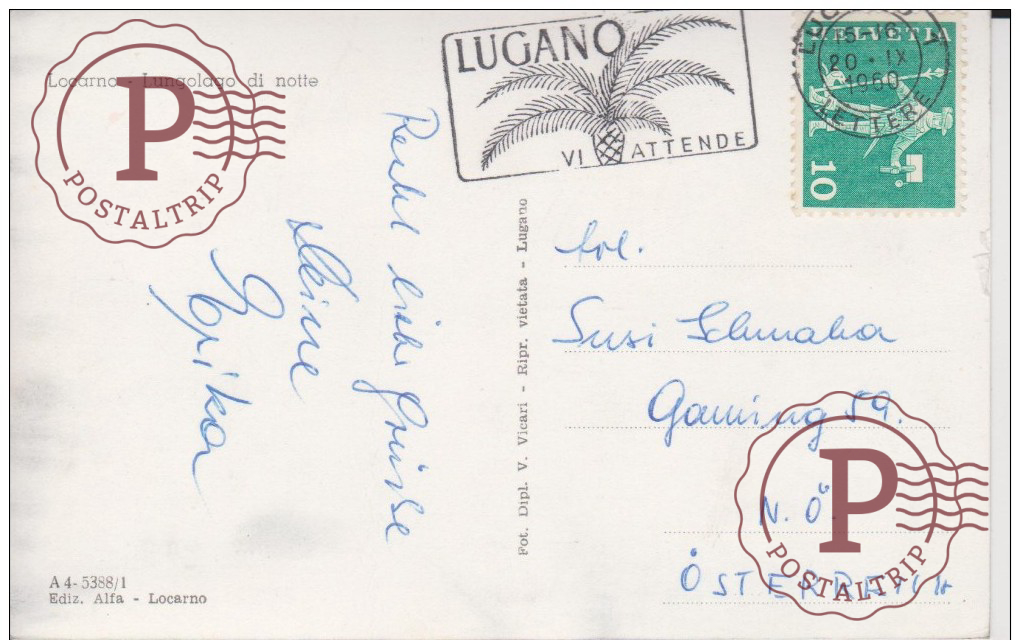 Locarno - Lungolago di notte
P
POSTALTRIP
LUGANO
VI ATTENDE
LUGANO 1
15-16
20 · IX
1960
LETTERE
HELVETIA
10
Recht liebe Grüsse
Deine
Erika
Fot. Dipl. V. Vicari - Ripr. vietata - Lugano
Frl.
Susi Schmaha
Gaming 59.
N.Ö.
ÖSTERREICH
P
POSTALTRIP
A 4-5388/1
Ediz. Alfa - Locarno